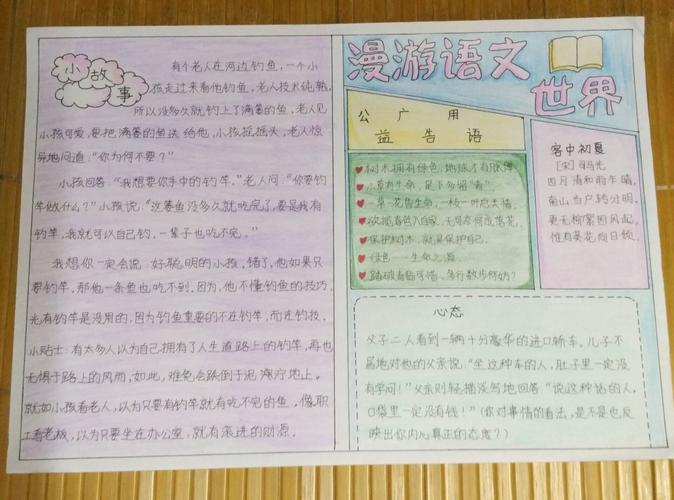 小故事
有个老人在河边钓鱼,一个小
孩走过来看他钓鱼,老人技术纯熟,
所以没多久就钓上了满篓的鱼,老人见
小孩可爱,要把满篓的鱼送给他,小孩摇摇头,老人惊
异地问道:“你为何不要?”
小孩回答:“我想要你手中的钓竿。”老人问:“你要钓
竿做什么?”小孩说:“这篓鱼没多久就吃完了,要是我有
钓竿,我就可以自己钓,一辈子也吃不完。”
我想你一定会说:好聪明的小孩,错了,他如果只
要钓竿,那他一条鱼也吃不到。因为,他不懂钓鱼的技巧,
光有钓竿是没用的,因为钓鱼重要的不在钓竿,而在钓技,
小贴士:有太多人认为自己拥有了人生道路上的钓竿,再也
无惧于路上的风雨,如此,难免会跌倒于泥泞地上。
就如小孩看老人,以为只要有钓竿就有吃不完的鱼,像职
工看老板,以为只要坐在办公室,就有滚进的财源。
漫游语文
世界
公广用
益告语
树木拥有绿色,地球才有脉搏
小草有生命,足下多留“青”。
一草一花皆生命,一枝一叶总关情。
欲揽春色入自家,无可奈何成落花。
保护树木,就是保护自己。
绿色——生命之源。
踏破青毯可惜,多行数步何妨?
客中初夏
[宋]司马光
四月清和雨乍晴,
南山当户转分明,
更无柳絮因风起,
惟有葵花向日倾。
心态
父子二人看到一辆十分豪华的进口轿车,儿子不
屑地对他的父亲说:“坐这种车的人,肚子里一定没
有学问!”父亲则轻描淡写地回答:“说这种话的人,
口袋里一定没有钱!”(你对事情的看法,是不是也反
映出你内心真正的态度?)